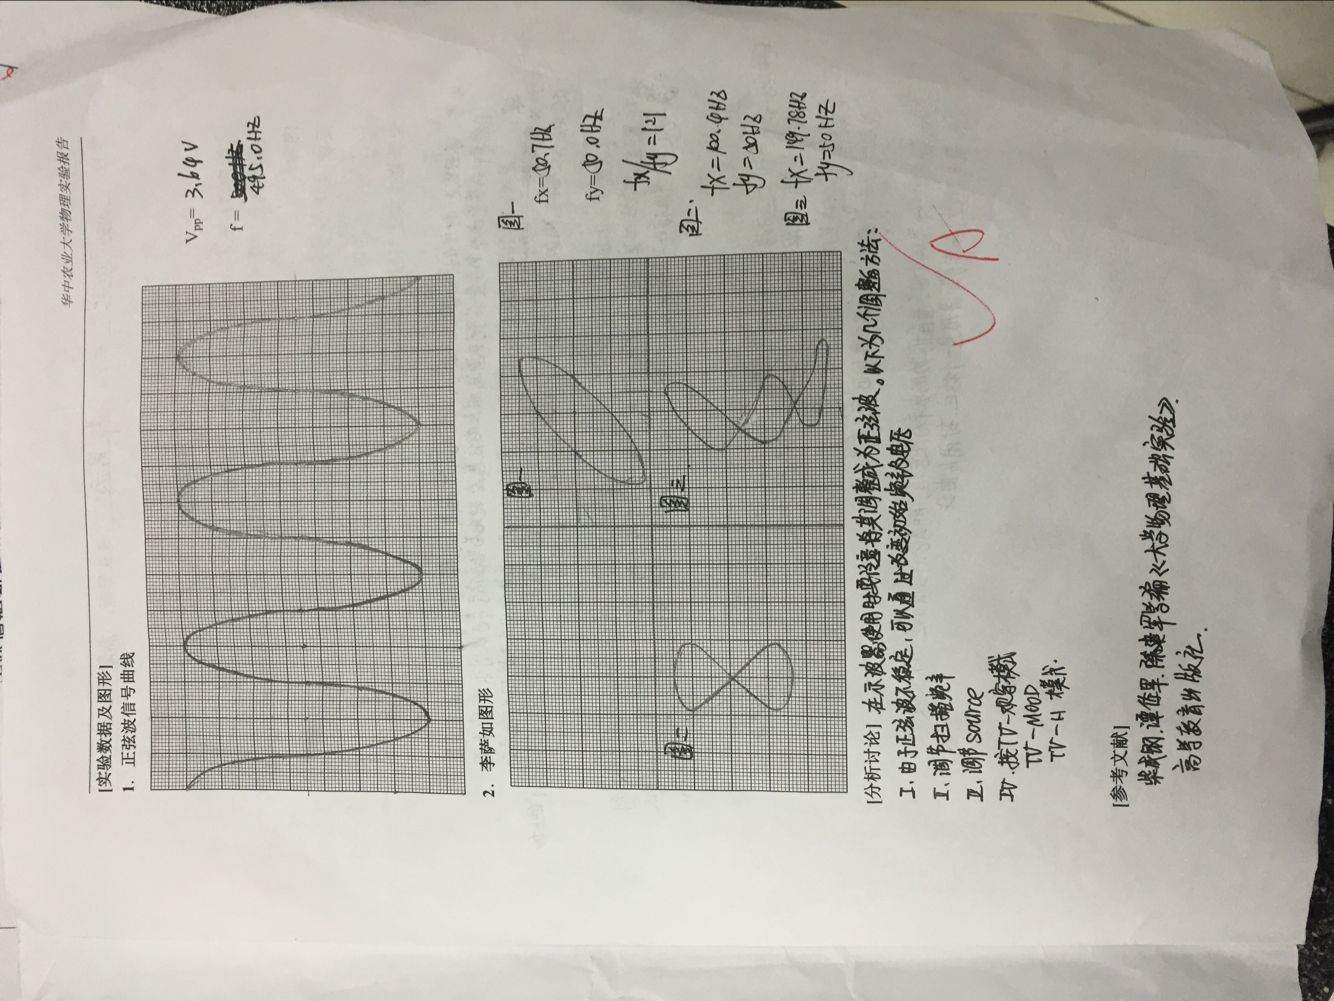 华中农业大学物理实验报告
[实验数据及图形]
1. 正弦波信号曲线
Vpp= 3.64V
f = 500HZ
495.0HZ
2. 李萨如图形
图一
图一
fx=50.7HZ
fy=50.0HZ
fx/fy=1:1
图二
图三
图二.
fx=100.4HZ
fy=50HZ
图三 fx=149.78HZ
fy=50HZ
[分析讨论] 在示波器使用时要注意将其调整成为正弦波。以下为几个调整方法:
I、由于正弦波不稳定,可以通过改变初始频率及电压
II、调节扫描频率
III、调节source
IV.按TV-观察模式
TV-MOOD
TV-H 模式.
A
[参考文献]
陈庚军等编《大学物理基础实验》.
高等教育出版社.